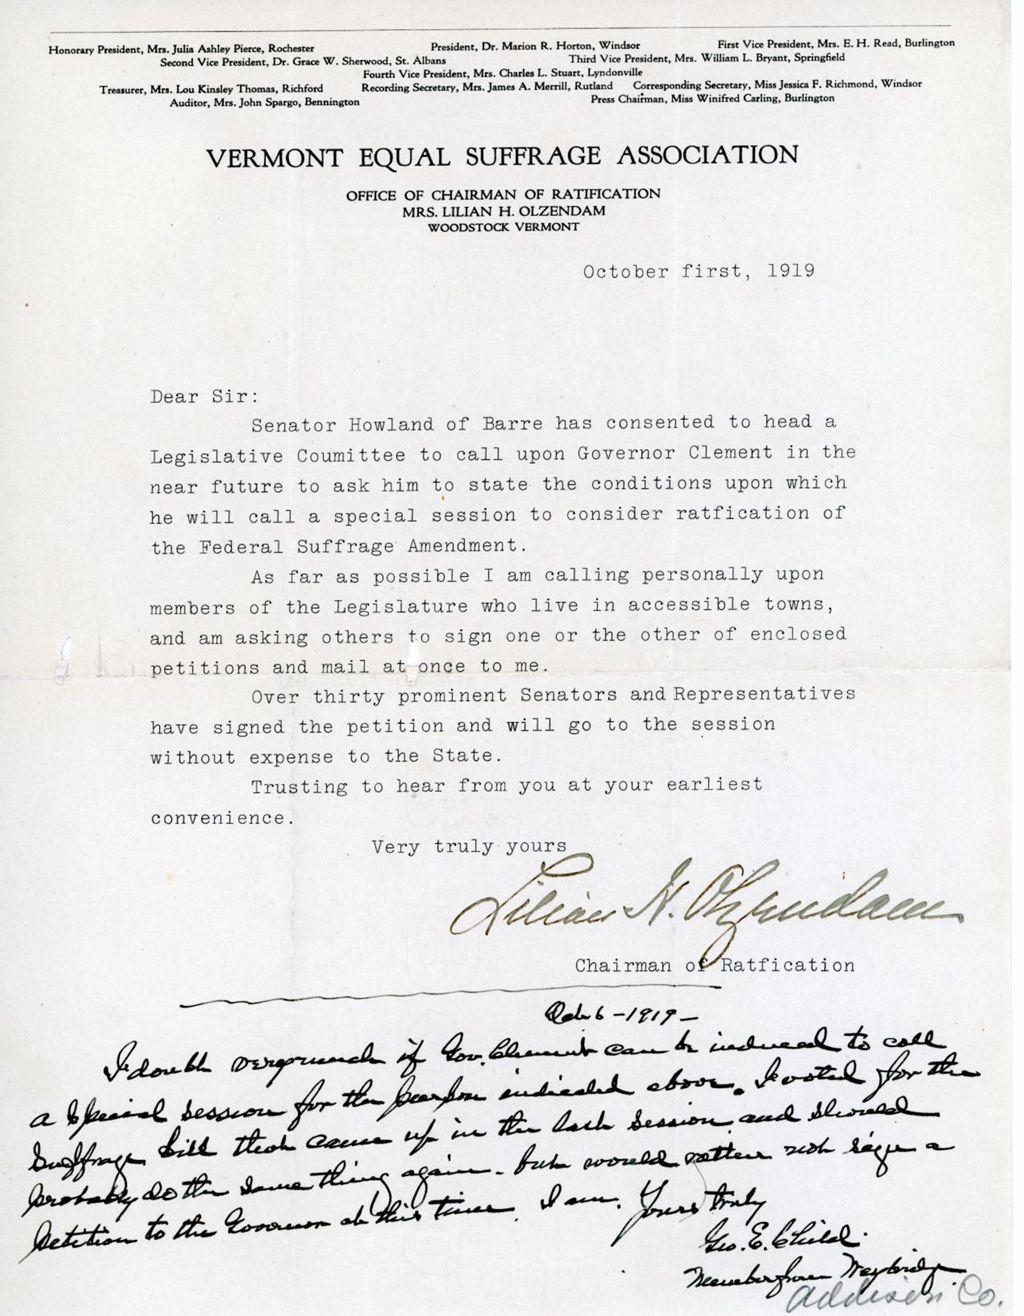 Honorary President, Mrs. Julia Ashley Pierce, Rochester President, Dr. Marion R. Horton, Windsor First Vice President, Mrs. E. H. Read, Burlington
Second Vice President, Dr. Grace W. Sherwood, St. Albans Third Vice President, Mrs. William L. Bryant, Springfield
Fourth Vice President, Mrs. Charles L. Stuart, Lyndonville
Treasurer, Mrs. Lou Kinsley Thomas, Richford Recording Secretary, Mrs. James A. Merrill, Rutland Corresponding Secretary, Miss Jessica F. Richmond, Windsor
Auditor, Mrs. John Spargo, Bennington Press Chairman, Miss Winifred Carling, Burlington
VERMONT EQUAL SUFFRAGE ASSOCIATION
OFFICE OF CHAIRMAN OF RATIFICATION
MRS. LILIAN H. OLZENDAM
WOODSTOCK VERMONT
October first, 1919
Dear Sir:
Senator Howland of Barre has consented to head a
Legislative Coumittee to call upon Governor Clement in the
near future to ask him to state the conditions upon which
he will call a special session to consider ratfication of
the Federal Suffrage Amendment.
As far as possible I am calling personally upon
members of the Legislature who live in accessible towns,
and am asking others to sign one or the other of enclosed
petitions and mail at once to me.
Over thirty prominent Senators and Representatives
have signed the petition and will go to the session
without expense to the State.
Trusting to hear from you at your earliest
convenience.
Very truly yours
Lilian H. Olzendam
Chairman of Ratfication
Oct 6 - 1919 -
I doubt very much if Gov. Clement can be induced to call
a special session for the purpose indicated above. I voted for the
Suffrage bill that came up in the last session and should
probably do the same thing again - but would rather not sign a
petition to the Governor at this time. I am. Yours truly
Geo. E. Child.
Member from Weybridge
Addison Co.